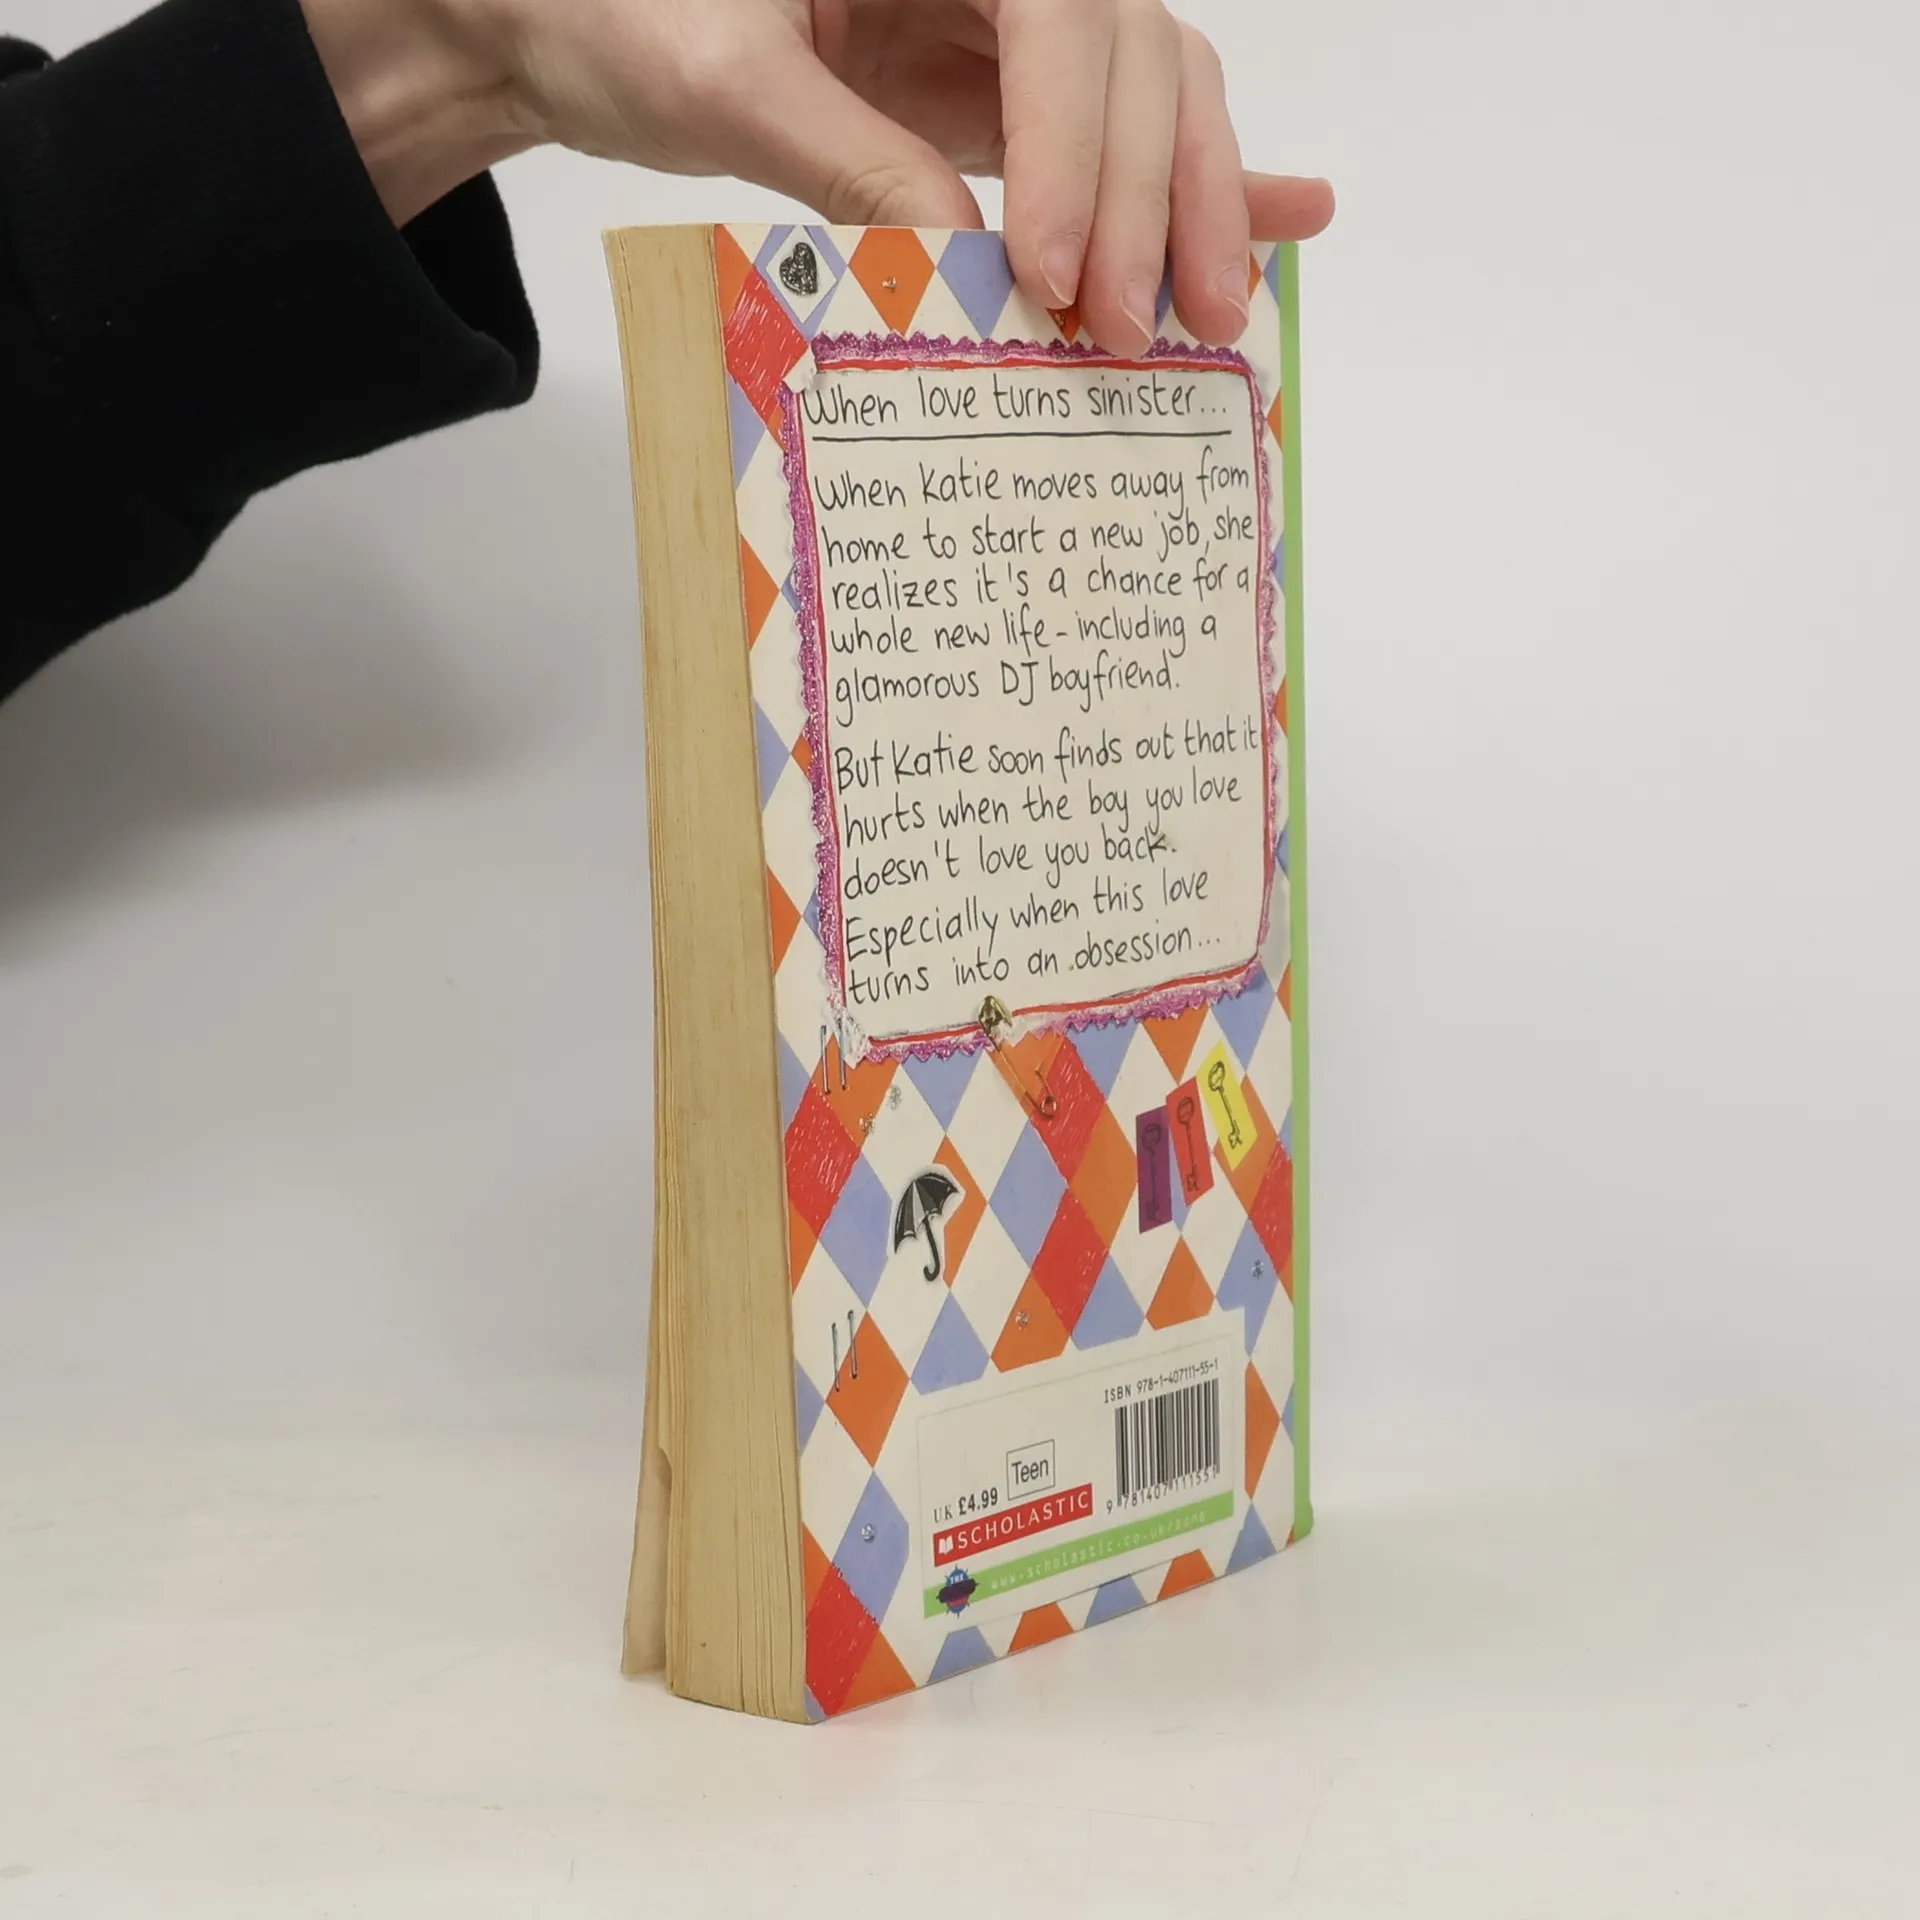 When love turns sinister...
When Katie moves away from
home to start a new job, she
realizes it's a chance for a
whole new life - including a
glamorous DJ boyfriend.
But Katie soon finds out that it
hurts when the boy you love
doesn't love you back.
Especially when this love
turns into an obsession...
ISBN 978-1-407111-55-1
9 781407 111551
Teen
UK £4.99
SCHOLASTIC
www.scholastic.co.uk/zone
THE